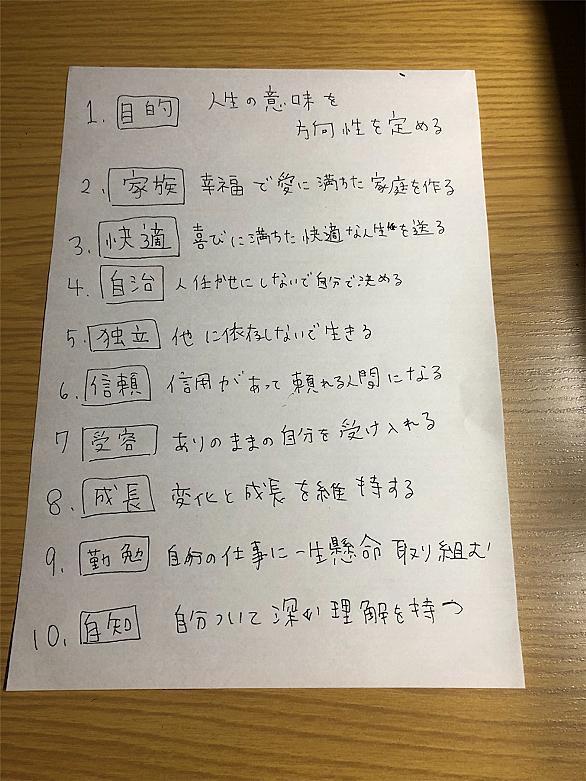 1. 目的 人生の意味を
方向性を定める
2. 家族 幸福で愛に満ちた家庭を作る
3. 快適 喜びに満ちた快適な人生を送る
4. 自治 人任かせにしないで自分で決める
5. 独立 他に依存しないで生きる
6. 信頼 信用があって頼れる人間になる
7 受容 ありのままの自分を受け入れる
8. 成長 変化と成長を維持する
9. 勤勉 自分の仕事に一生懸命取り組む
10. 自知 自分ついて深い理解を持つ